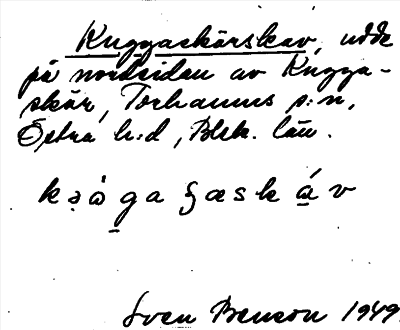 Kuggaskärskav, udde
på nordsidan av Kugga-
skär, Torhamns s:n,
Östra h:d, Blek. län.
Sven Benson 1949